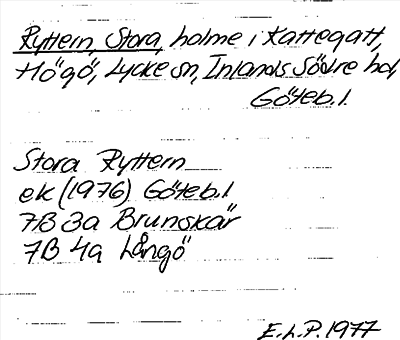 Ryttern, Stora, holme i Kattegatt,
Högö, Lycke sn, Inlands Södre hd,
Göteb. l.
Stora Ryttern
ek (1976) Göteb. l
7B 3a Brunskär
7B 4a Långö
E.L.P. 1977